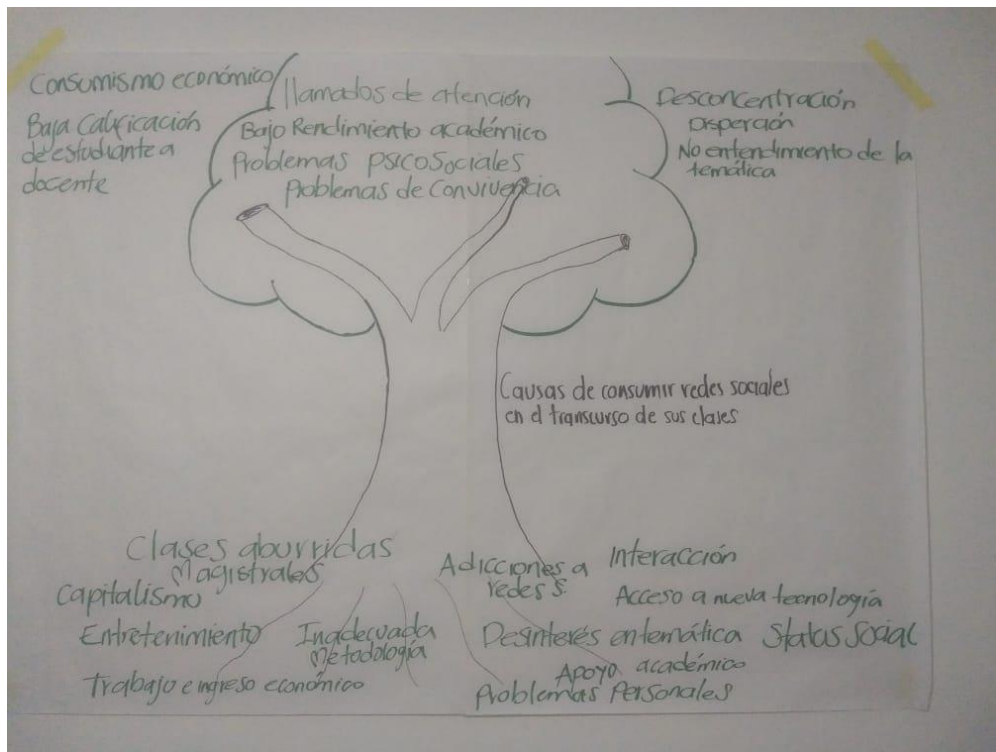 Consumismo económico
Baja Calificación
de estudiante a
docente
llamados de atención
Bajo Rendimiento académico
Problemas psicosociales
Problemas de Convivencia
Desconcentración
Disperción
No entendimiento de la
temática
Causas de consumir redes sociales
en el transcurso de sus clases
Clases aburridas
Magistrales
Capitalismo
Entretenimiento
Inadecuada
Metodología
Trabajo e ingreso económico
Adicciones a
redes S.
Interacción
Acceso a nueva tecnología
Desinterés en temática
Status Social
Apoyo académico
Problemas Personales